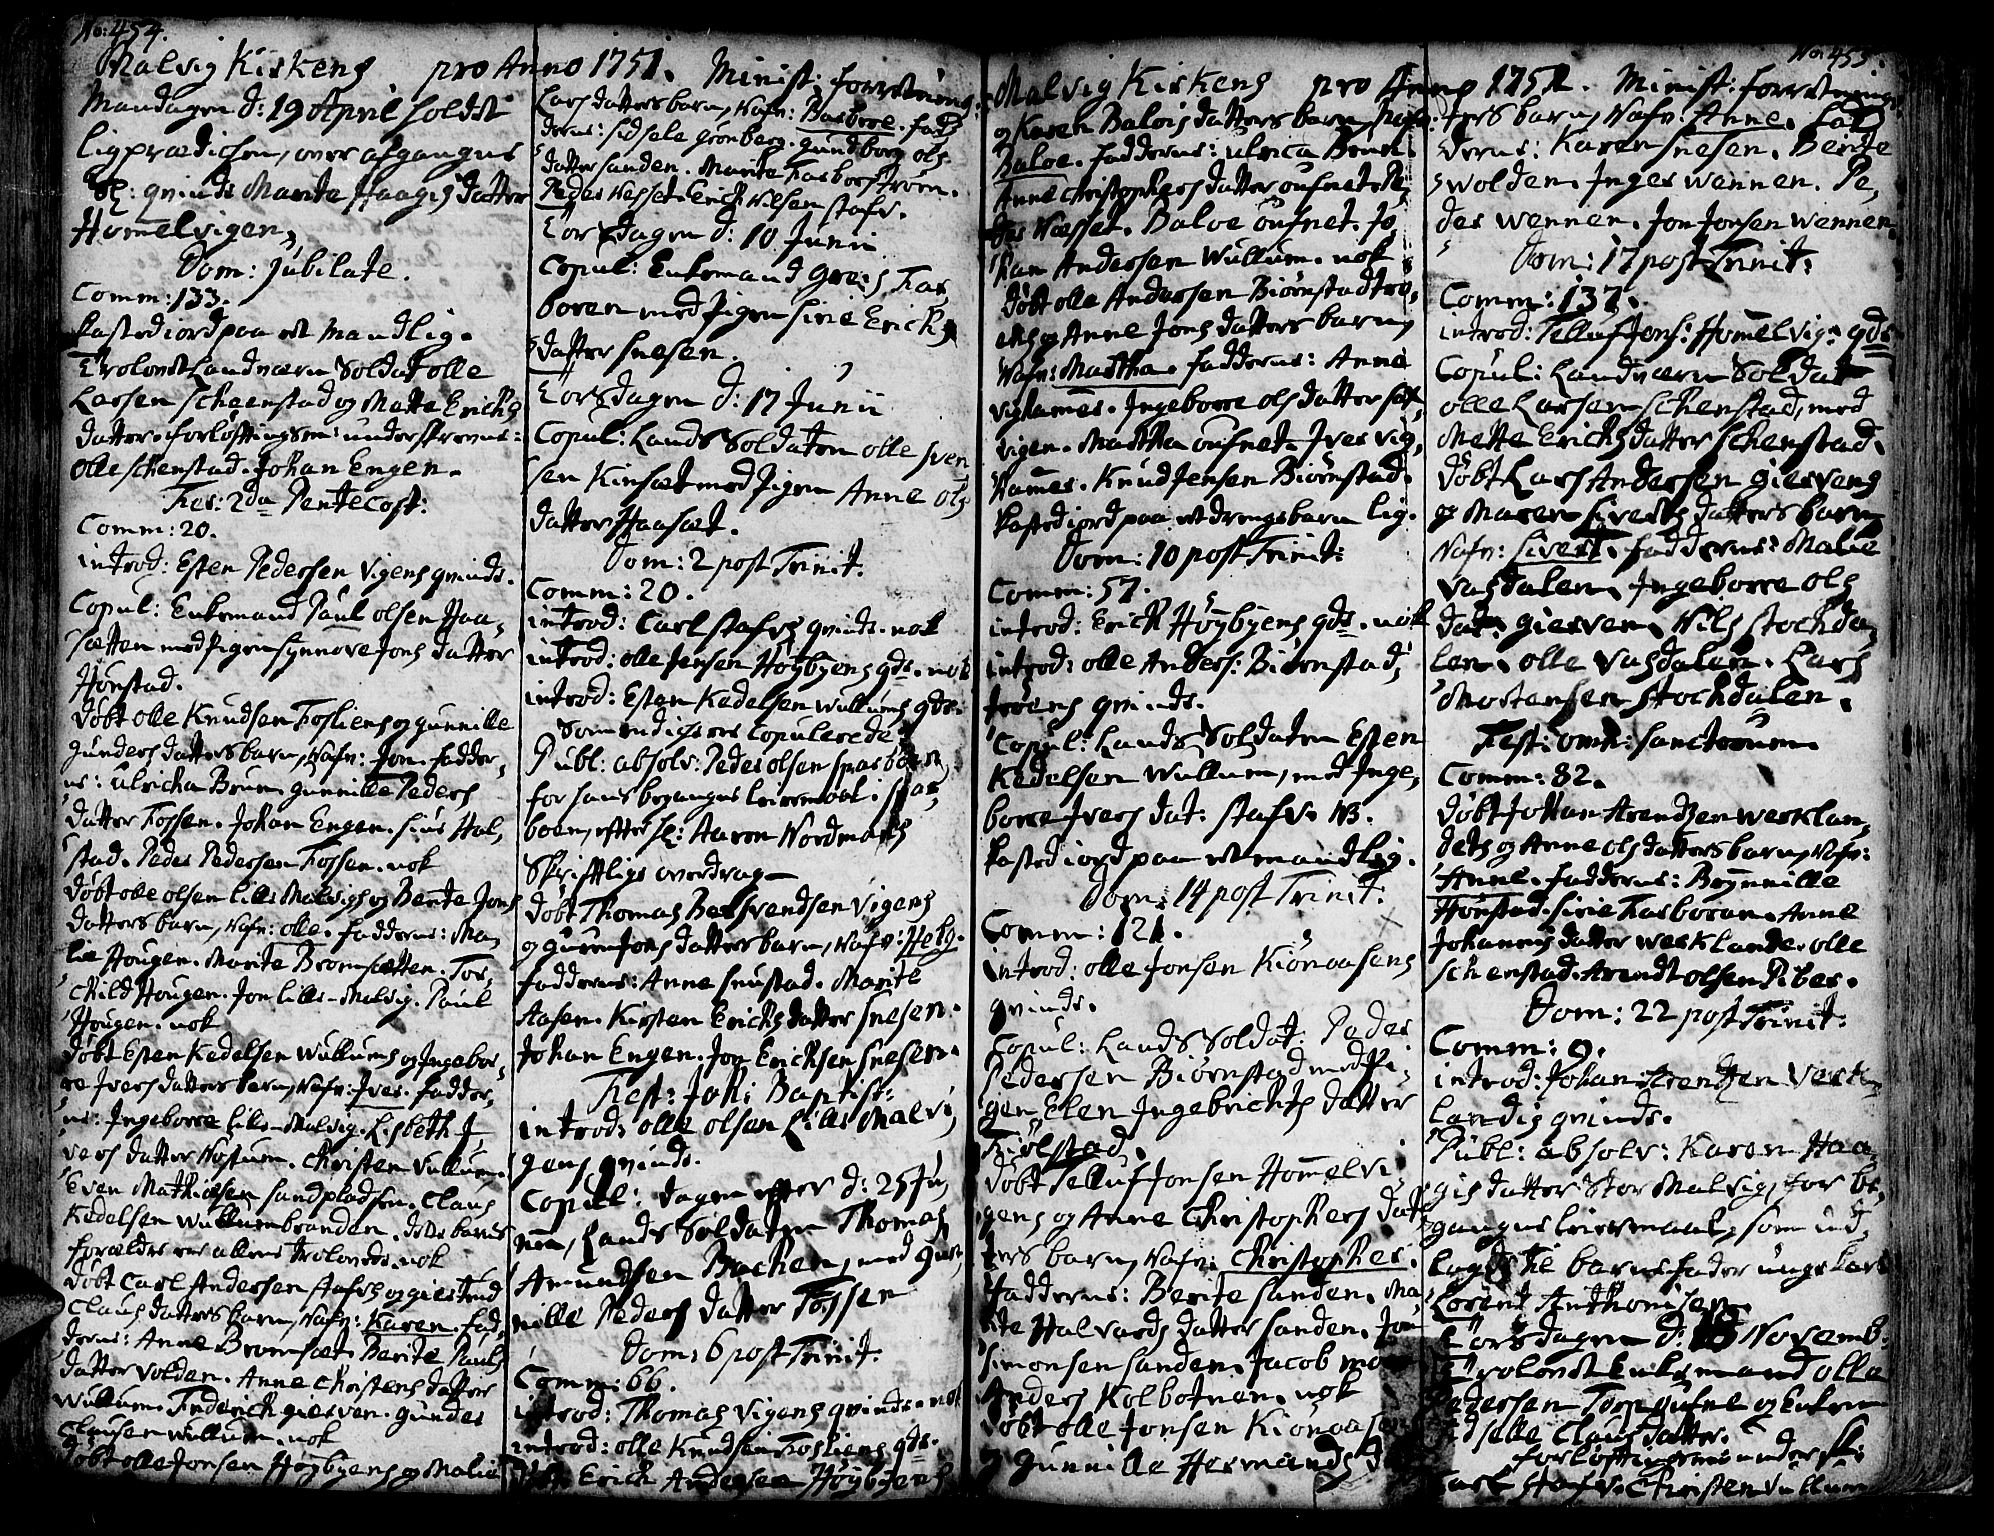 No: 454.
Malvig Kirkens pro Anno 1751. Minist: forretning:
Mandagen d: 19 April holdt
ligprædichen, over afgangne
Sl: qvinde Marite Haagis datter
Hommelvigen,
Dom: Jubilate.
Comm: 133.
kasted jord paa et mandlig.
Trolovet Landværn Soldat olle
Larsen schenstad og Mette Erichs
datter. forløftingsm: underskrevne:
olle schenstad. Johan Engen.
Fer: 2da Pentecost:
Comm: 20.
introd: Esten Pedersen Vigens qvinde.
Copul: Enkemand Paul olsen Haa,
sætten med pigen synnove Jons datter
Hønstad.
døbt olle Knudsen Fosliens og gunnille
gunders datters barn, Nafn: Jon. fadder,
ne: ulricha Bruun. gunnille Peders
datter Fossen. Johan Engen. siur Hal,
stad. Peder Pedersen Fossen. nok
døbt olle olsen lille Malvigs og Berite Jons
datters barn, Nafn: olle. fadderne: Ma,
lie Hougen. Marite Bromsætten. Tor,
child Hougen. Jon lille-Malvig. Paul
Hougen. nok
døbt Esten Kedelsen Wullums og Ingebor,
re Ivers datters barn, Nafn: Iver. fadder,
ne: Ingeborre lille-Malvig. Lisbeth I,
vers datter Nøstum. Christen Vullum.
Even Mathiesen sandpladsen. Claus
Kedelsen Wullumbranden. dette barns
forældre ere allene trolovede. nok
døbt Carl Andersen stafrs og giertrud
Claus datters barn, Nafn: Karen. fad,
derne: Anne Bromset. Berite Pauls
datter Volden. Anne Christens datter
Wullum. Friderich gierven. gunder
Clausen Wullum. nok
døbt olle Jonsen Høybyens og Malie
Lars datters barn, Nafn: Barbroe. fad,
derne: sidsele grønberg. gundborg ols
datter sanden. Marite Farborstrøm.
Peder Nesset. Erich Nilsen stafr.
Torsdagen d: 10 Junii
Copul: Enkemand greis Far,
boren med pigen sirie Erichs
datter snesen.
Torsdagen d: 17 Junii
Copul: Lands Soldaten olle sven
sen Kinset med pigen Anne ols
datter Haaset.
Dom: 2 post Trinit.
Comm: 20.
introd: Carl stafrs qvinde. nok
introd: olle Jensen Høybyens qde. nok
introd: Esten Kedelsen Wullums qde.
Som endes ere Copulerede
Publ: absolv: Peder olsen sparboen,
for hans begangne leiermaal i spar,
boen, efter Hr: Aaron Nordmands
Skriftlige overdrag
døbt Thomas Bersvendsen Vigens
og guren Jons datters barn, Nafn: Helg.
fadderne: Anne snustad. Marite
Aasen. Kirsten Erichs datter snesen.
Johan Engen. Jon Erichsen snesen.
Fest: Joh: Baptist:
introd: olle olsen Lille Malvi,
gens qvinde.
Copul: dagen efter d: 25 Ju,
nii, Lands Soldaten Thomas
Amundsen Bachen, med gun,
nille Peders datter Fossen
Dom: 6 post Trinit.
Comm: 66.
introd: Thomas Vigens qvinde. nok
introd: olle Knudsen Fosliens qde.
døbt Erich Andersen Høybyens
No: 455.
Malvig Kirkens pro Anno 1751. Minist: forretning:
og Karen Balois datters barn, Nafn:
Baloe. fadderne: ulrica Bruun.
Anne Christophers datter oufnet. Pe,
der Næsset. Baloe oufnet. Jo,
han Andersen Wullum. nok
døbt olle Andersen Biørnstadtrø,
ens og Anne Jons datters barn,
Nafn: Martha. fadderne: Anne
Vighammer. Ingeborre ols datter sax,
vigen. Martha oufnet. Iver vig,
hammer. Knud Jensen Biørnstad.
kasted jord paa et drengebarn lig.
Dom: 10 post Trinit:
Comm: 57.
introd: Erich Høybyens qde. nok
introd: olle Anders: Biørnstad,
trøens qvinde.
Copul: Lands Soldaten Esten
Kedelsen Wullum, med Inge,
borre Ivers dat: stafr. NB.
kasted jord paa et mandlig.
Dom: 14 post Trinit:
Comm: 121.
introd: olle Jonsen Kionaasens
qvinde.
Copul: Lands Soldat: Peder
Pedersen Biørnstad med pi,
gen Elen Ingebrichts datter
Fiølstad,
døbt Telluf Jonsen Hommelvi,
gens og Anne Christophers dat
ters barn, Nafn: Christopher.
Fadderne: Berite sanden. Ma,
rite Halvards datter sanden. Jon
Simonsen sanden. Jacob
Anders Kolbotnen. nok
døbt olle Jonsen Kionaasens
og gunnille Hermands
ters barn, Nafn: Anne. Fad,
derne: Karen snesen. Berite
wolden. Inger wennen. Pe,
der wennen. Jon Jonsen wennen.
Dom: 17 post Trinit:
Comm: 137.
introd: Telluf Jons: Hommelvig: qde
Copul: Landværn Soldat
olle Larsen schenstad, med
Mette Erichs datter schenstad.
døbt Lars Andersen giervens
og Maren Siverts datters barn
Nafn: Sivert. fadderne: Malie
Vasdalen. Ingeborre ols
dat: gierven. Nils stochda,
len. olle Vasdalen. Lars
Mortensen stochdalen.
Fest: omn: sanctorum.
Comm: 82.
døbt Johan Arendtzen werklan,
dets og Anne ols datters barn, Nafn:
Anne. fadderne: Brynnille
Hønstad. sirie Farboran. Anne
Johannis datter werklande. olle
schenstad. Arendt olsen Piber.
Dom: 22 post Trinit:
Comm: 9.
introd: Johan Arendtzen Verk,
landis qvinde.
Publ: absolv: Karen Haa,
gis datter Stor Malvig, for be,
gangne leiermaal, som ud
lagde til barnefader unge karl
Lorent Anthonisen.
Torsdagen d: 18 Novemb:
Trolovet Enkemand olle
Pedersen Torp gufne og Enken
sidselle Claus datter.
forløftingsm: underskr:
Carl stafr. Christen Vullum